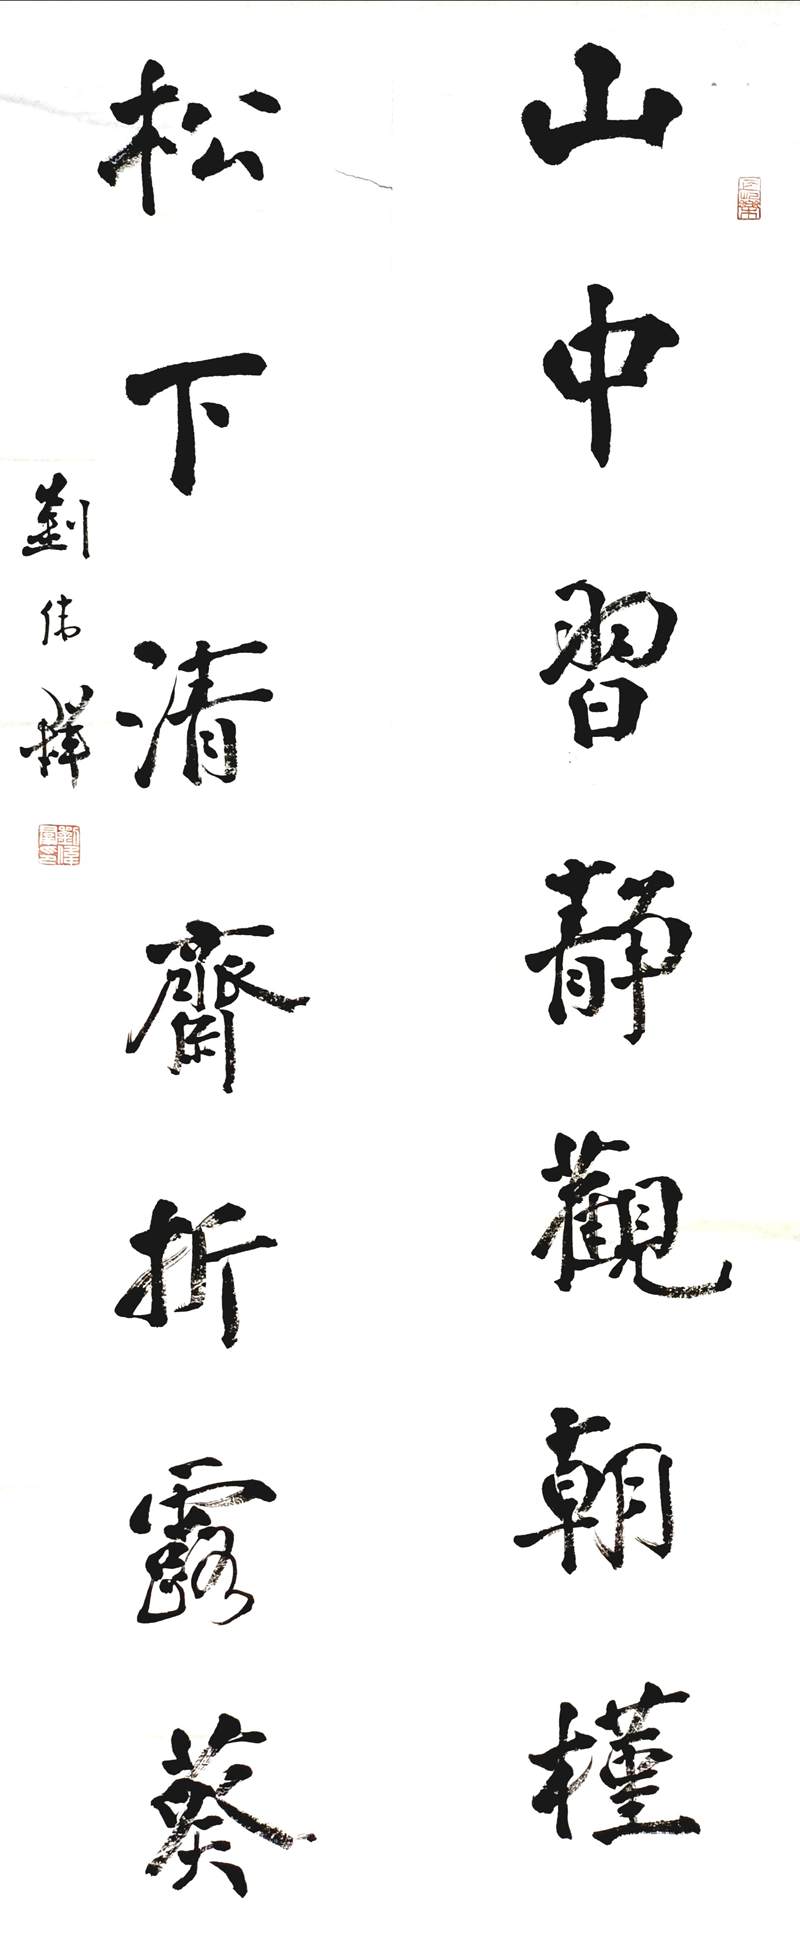 山中習靜觀朝槿
松下清齋折露葵
劉偉